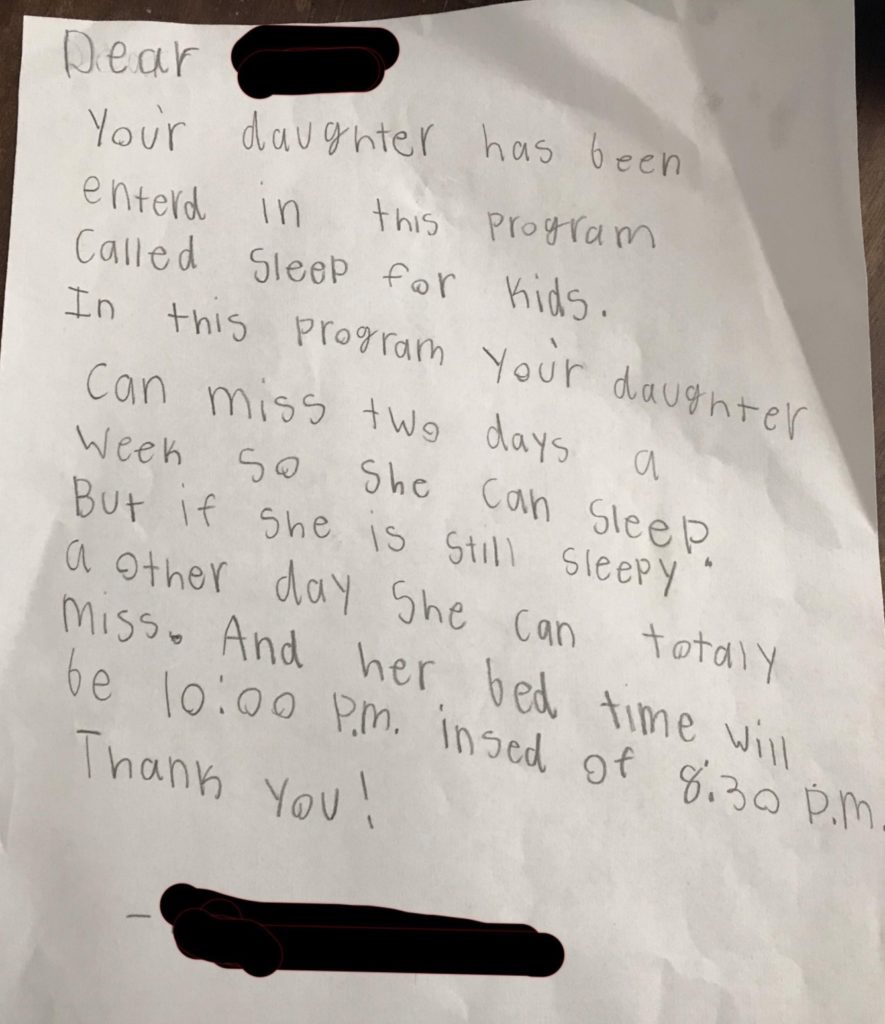 Dear
Your daughter has been
enterd in this program
Called Sleep for kids.
In this program Your daughter
Can miss two days a
Week so she can sleep.
But if she is still sleepy
a other day she can totaly
miss. And her bed time will
be 10:00 P.M. insed of 8:30 P.M.
Thank You!
-